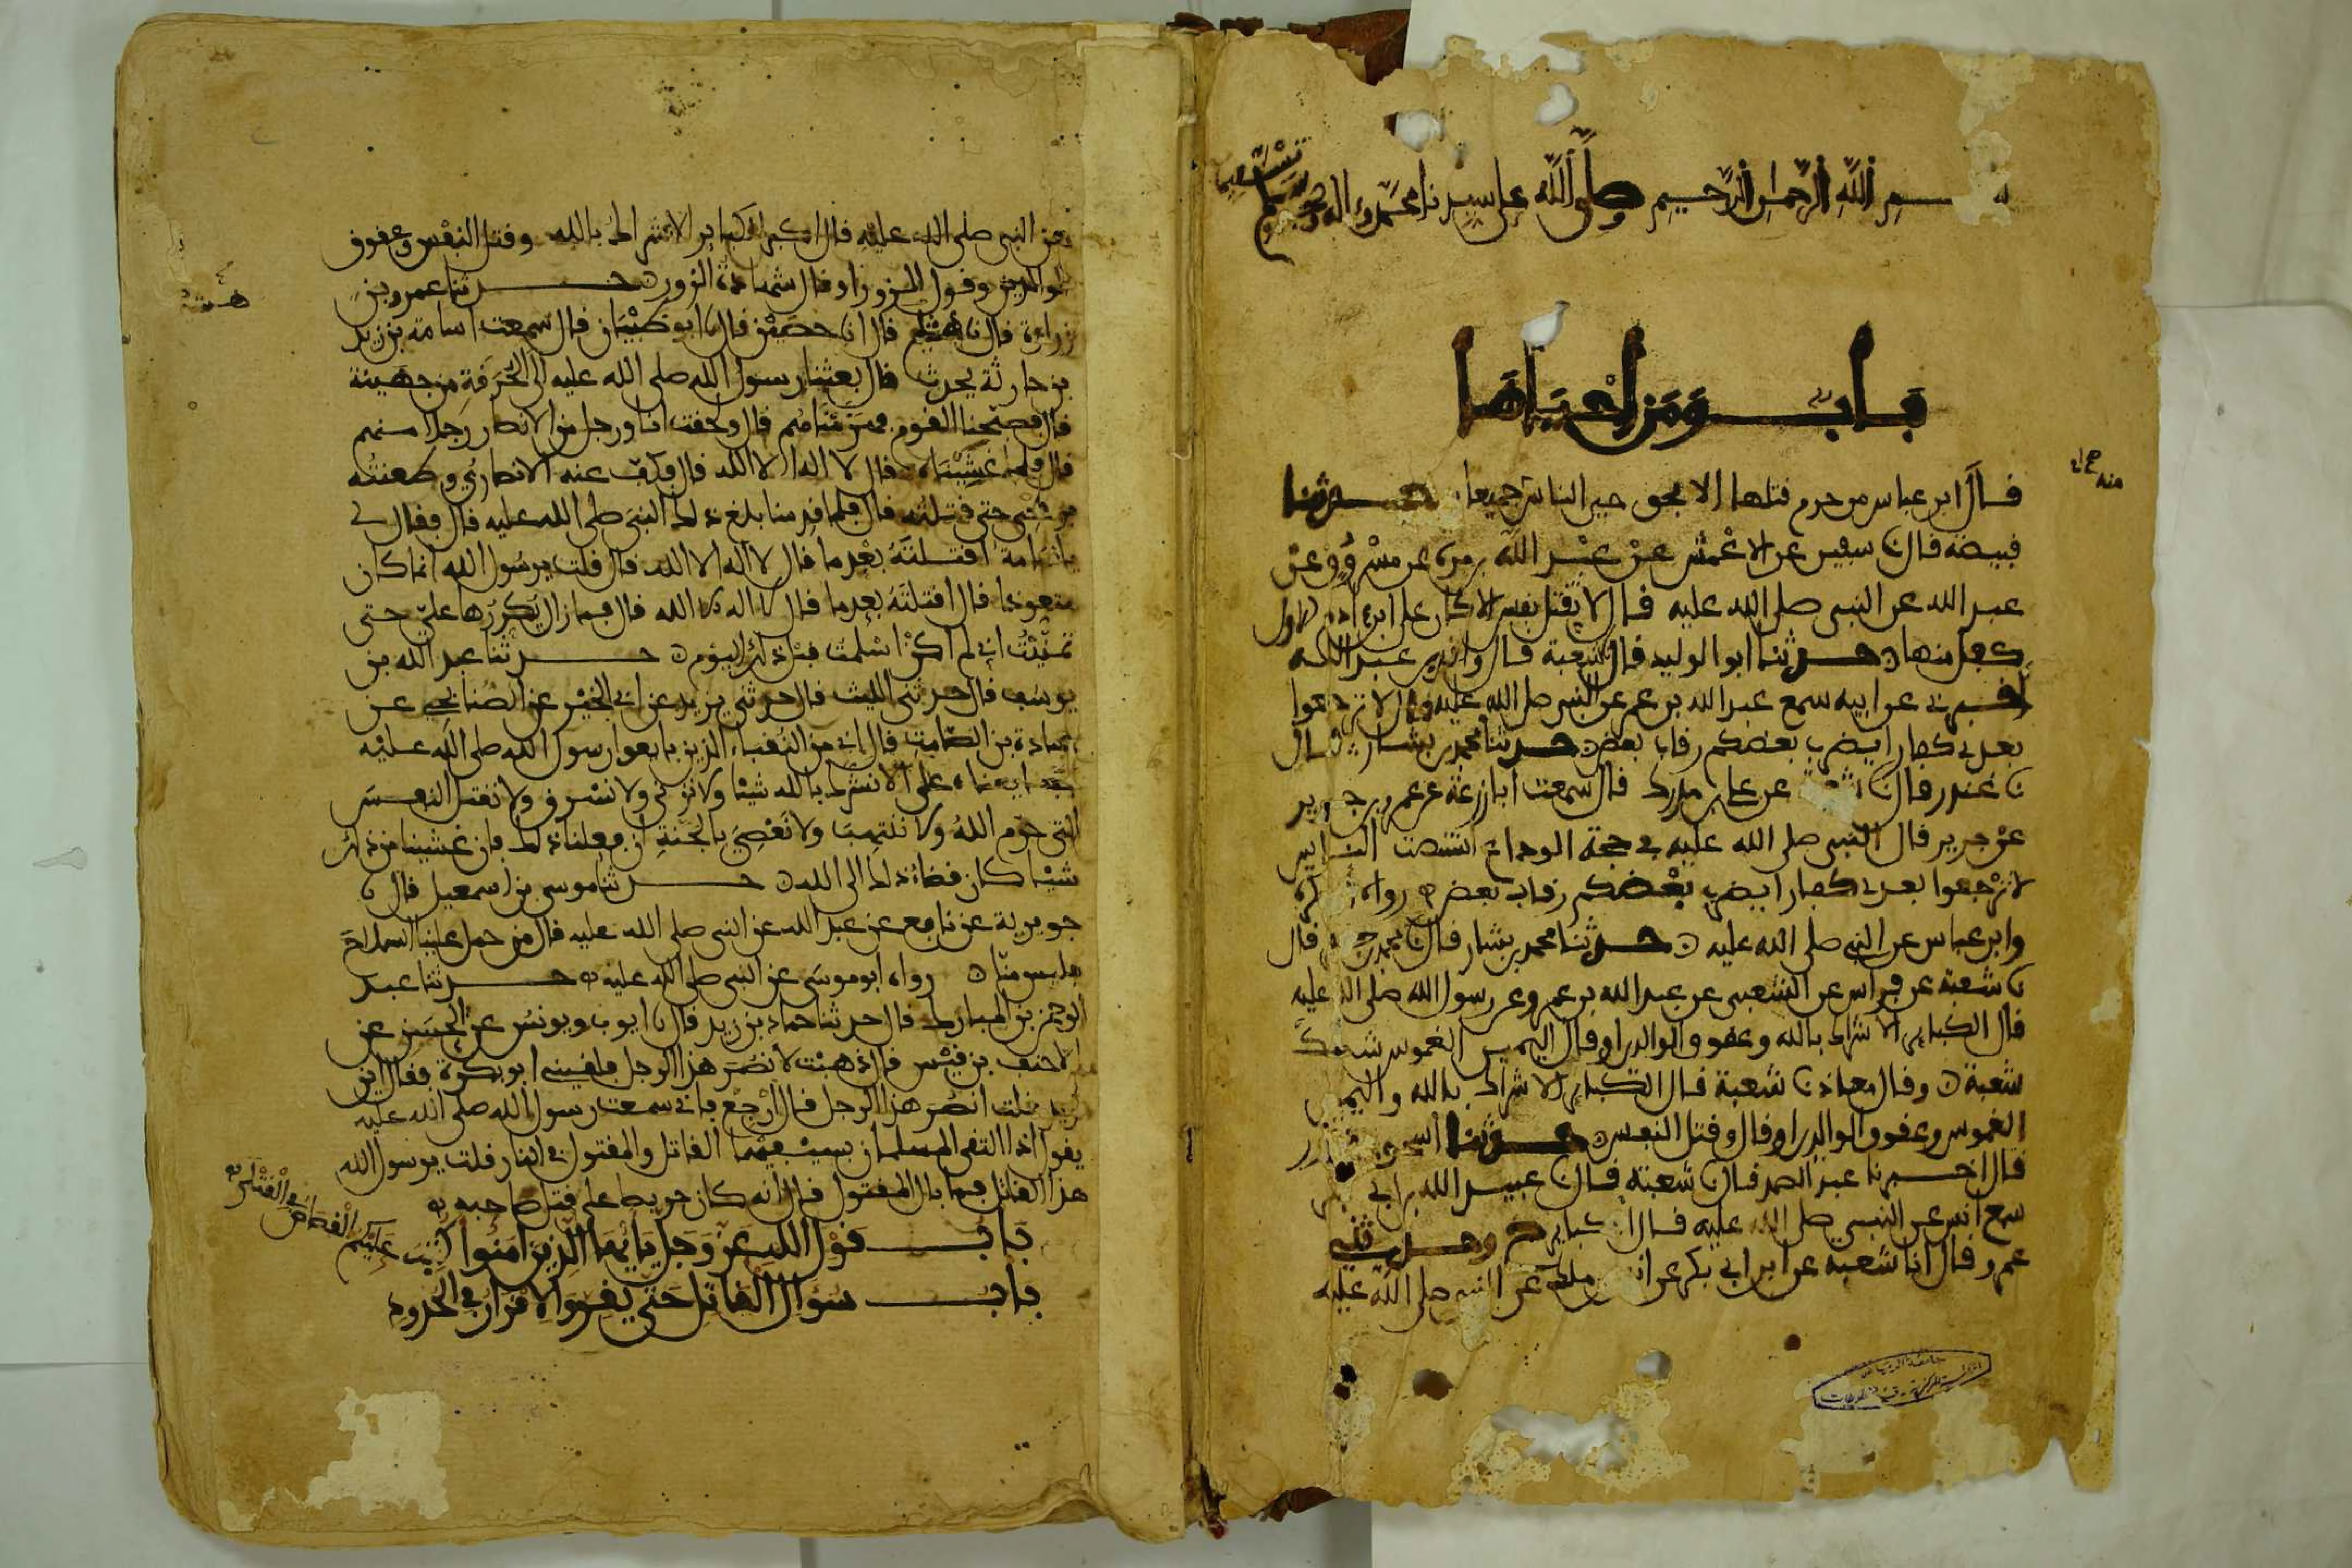 بسم الله الرحمن الرحيم وصلى الله على سيدنا محمد وعلى اله
باب ومن احياها
قال ابن عباس من حرم قتلها الا بحق حيي الناس جميعا حدثنا
قبيصة قال نا سفين عن الاعمش عن عبد الله بن مرة عن مسروق عن
عبد الله عن النبي صلى الله عليه قال لا تقتل نفس الا كان على ابن ادم الاول
كفل منها حدثنا ابو الوليد قال نا شعبة قال واقد بن عبد الله
اخبرني عن ابيه سمع عبد الله بن عمر عن النبي صلى الله عليه قال لا ترجعوا
بعدي كفارا يضرب بعضكم رقاب بعض حدثنا محمد بن بشار قال
نا غندر قال نا شعبة عن علي بن مدرك قال سمعت ابا زرعة بن عمرو بن جرير
عن جرير قال قال النبي صلى الله عليه في حجة الوداع استنصت الناس
لا ترجعوا بعدي كفارا يضرب بعضكم رقاب بعض رواه ابو بكرة
وابن عباس عن النبي صلى الله عليه حدثنا محمد بن بشار قال نا محمد بن جعفر قال
نا شعبة عن فراس عن الشعبي عن عبد الله بن عمرو عن رسول الله صلى الله عليه
قال الكبائر الاشراك بالله وعقوق الوالدين او قال اليمين الغموس شك
شعبة وقال معاذ نا شعبة قال الكبائر الاشراك بالله واليمين
الغموس وعقوق الوالدين او قال وقتل النفس حدثنا اسحق بن منصور
قال اخبرنا عبد الصمد قال نا شعبة قال نا عبيد الله بن ابي بكر
سمع انس عن النبي صلى الله عليه قال الكبائر ح وحدثني
عمرو قال انا شعبة عن ابن ابي بكر عن انس بن ملك عن النبي صلى الله عليه
منه
عن النبي صلى الله عليه قال اكبر الكبائر الاشراك بالله وقتل النفس وعقوق
الوالدين وقول الزور او قال شهادة الزور حدثنا عمرو بن
زرارة قال نا هشيم قال انا حصين قال نا ابو ظبيان قال سمعت اسامة بن زيد
بن حارثة يحدث قال بعثنا رسول الله صلى الله عليه الى الحرقة من جهينة
قال فصبحنا القوم فهزمناهم قال ولحقت انا ورجل من الانصار رجلا منهم
قال فلما غشيناه قال لا اله الا الله قال فكف عنه الانصاري وطعنته
برمحي حتى قتلته قال فلما قدمنا بلغ ذلك النبي صلى الله عليه قال فقال لي
يا اسامة اقتلته بعدما قال لا اله الا الله قال قلت يرسول الله انما كان
متعوذا قال اقتلته بعدما قال لا اله الا الله قال فما زال يكررها علي حتى
تمنيت اني لم اكن اسلمت قبل ذلك اليوم حدثنا عبد الله بن
يوسف قال حدثني الليث قال حدثني يزيد عن ابي الخير عن الصنابحي عن
عبادة بن الصامت قال اني من النقباء الذين بايعوا رسول الله صلى الله عليه
بايعناه على الا نشرك بالله شيئا ولا نزني ولا نسرق ولا نقتل النفس
التي حرم الله ولا ننتهب ولا نعصي بالجنة ان فعلنا ذلك فان غشينا من ذلك
شيئا كان قضاء ذلك الى الله حدثنا موسى بن اسمعيل قال نا
جويرية عن نافع عن عبد الله عن النبي صلى الله عليه قال من حمل علينا السلاح
فليس منا رواه ابو موسى عن النبي صلى الله عليه حدثنا عبد
الرحمن بن المبارك قال حدثنا حماد بن زيد قال نا ايوب ويونس عن الحسن عن
الاحنف بن قيس قال ذهبت لانصر هذا الرجل فلقيني ابو بكرة فقال اين
تريد قلت انصر هذا الرجل قال ارجع فاني سمعت رسول الله صلى الله عليه
يقول اذا التقى المسلمان بسيفيهما القاتل والمقتول في النار قلت يرسول الله
هذا القاتل فما بال المقتول قال انه كان حريصا على قتل صاحبه
باب قول الله عز وجل يايها الذين امنوا كتب عليكم القصاص في القتلى
باب سؤال القاتل حتى يقر والاقرار في الحدود